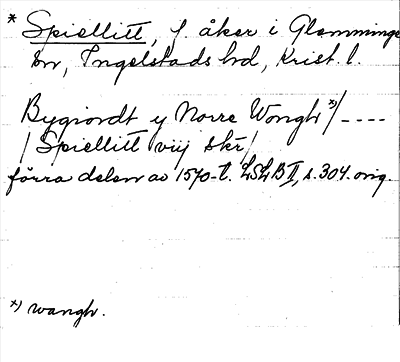 * Spiellitt, f. åker i Glemminge
sn, Ingelstads hd, Krist. l.
Bygiordt y Norre Wongh *)/----
/Spiellitt viij skr/
förra delen av 1570-t. LSLB II, s. 304. orig.
*) wangh.